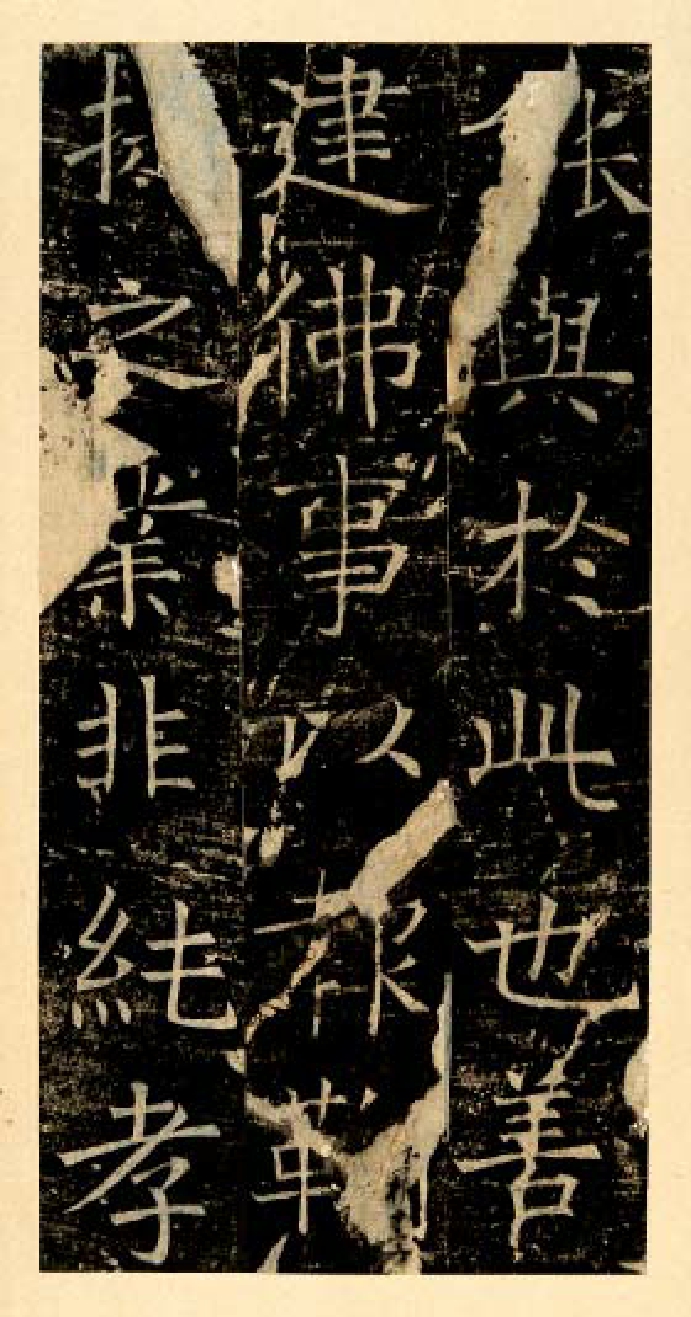 與於此也善
建佛事以報
之業非純孝